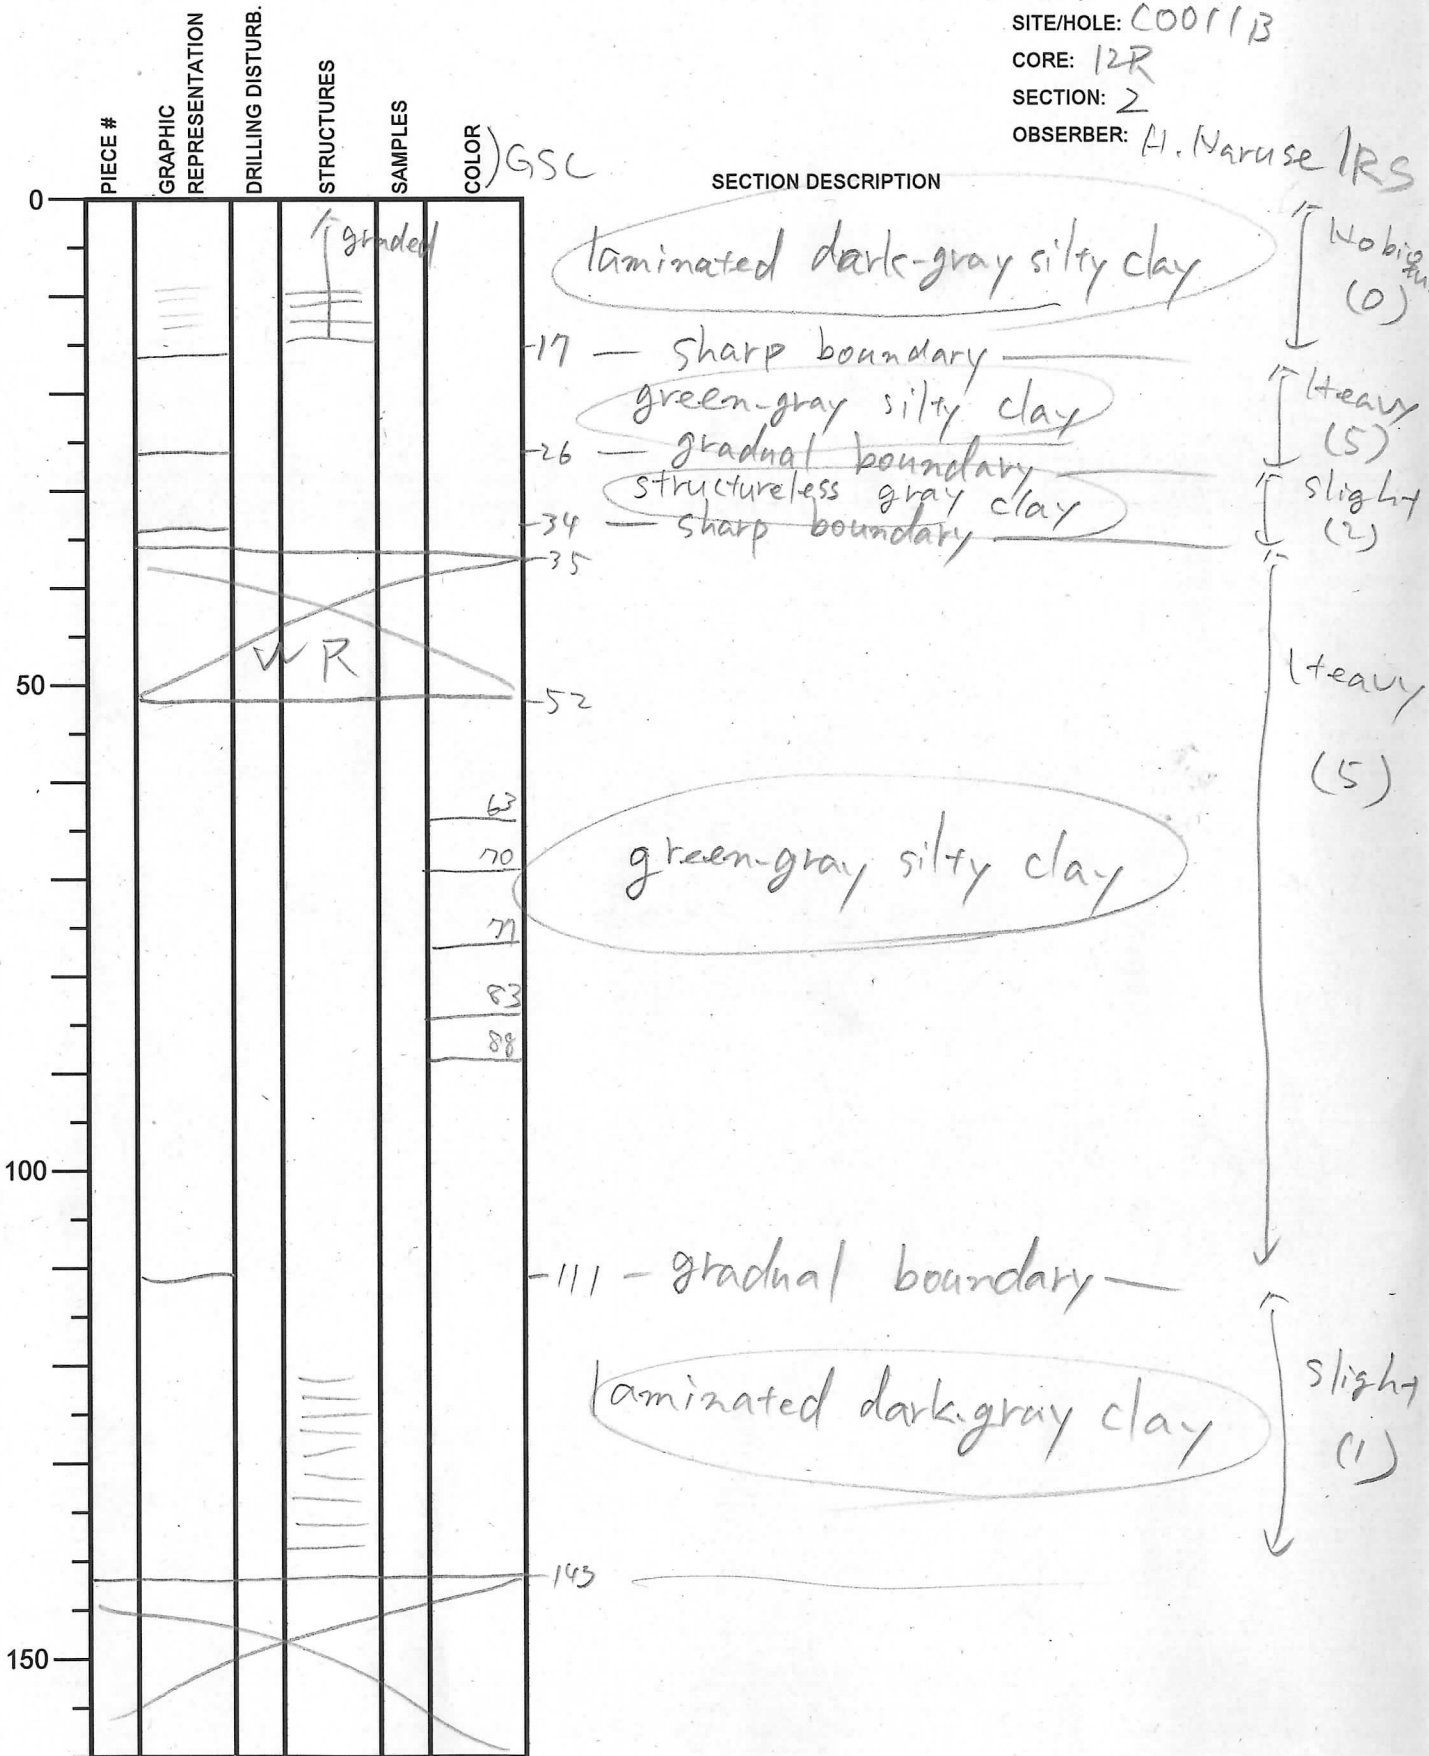 SITE/HOLE: C0011B
CORE: 12R
SECTION: 2
OBSERBER: H. Naruse /RS
PIECE #
GRAPHIC REPRESENTATION
DRILLING DISTURB.
STRUCTURES
SAMPLES
COLOR ) GSC
SECTION DESCRIPTION
0
graded
laminated dark-gray silty clay
(0)
17 — sharp boundary
green-gray silty clay
Heavy
(5)
26 — gradual boundary
structureless gray clay
slight
(2)
34 — sharp boundary
35
WR
Heavy
50
52
(5)
63
70
green-gray silty clay
77
83
88
100
111 - gradual boundary
laminated dark-gray clay
slight
(1)
143
150